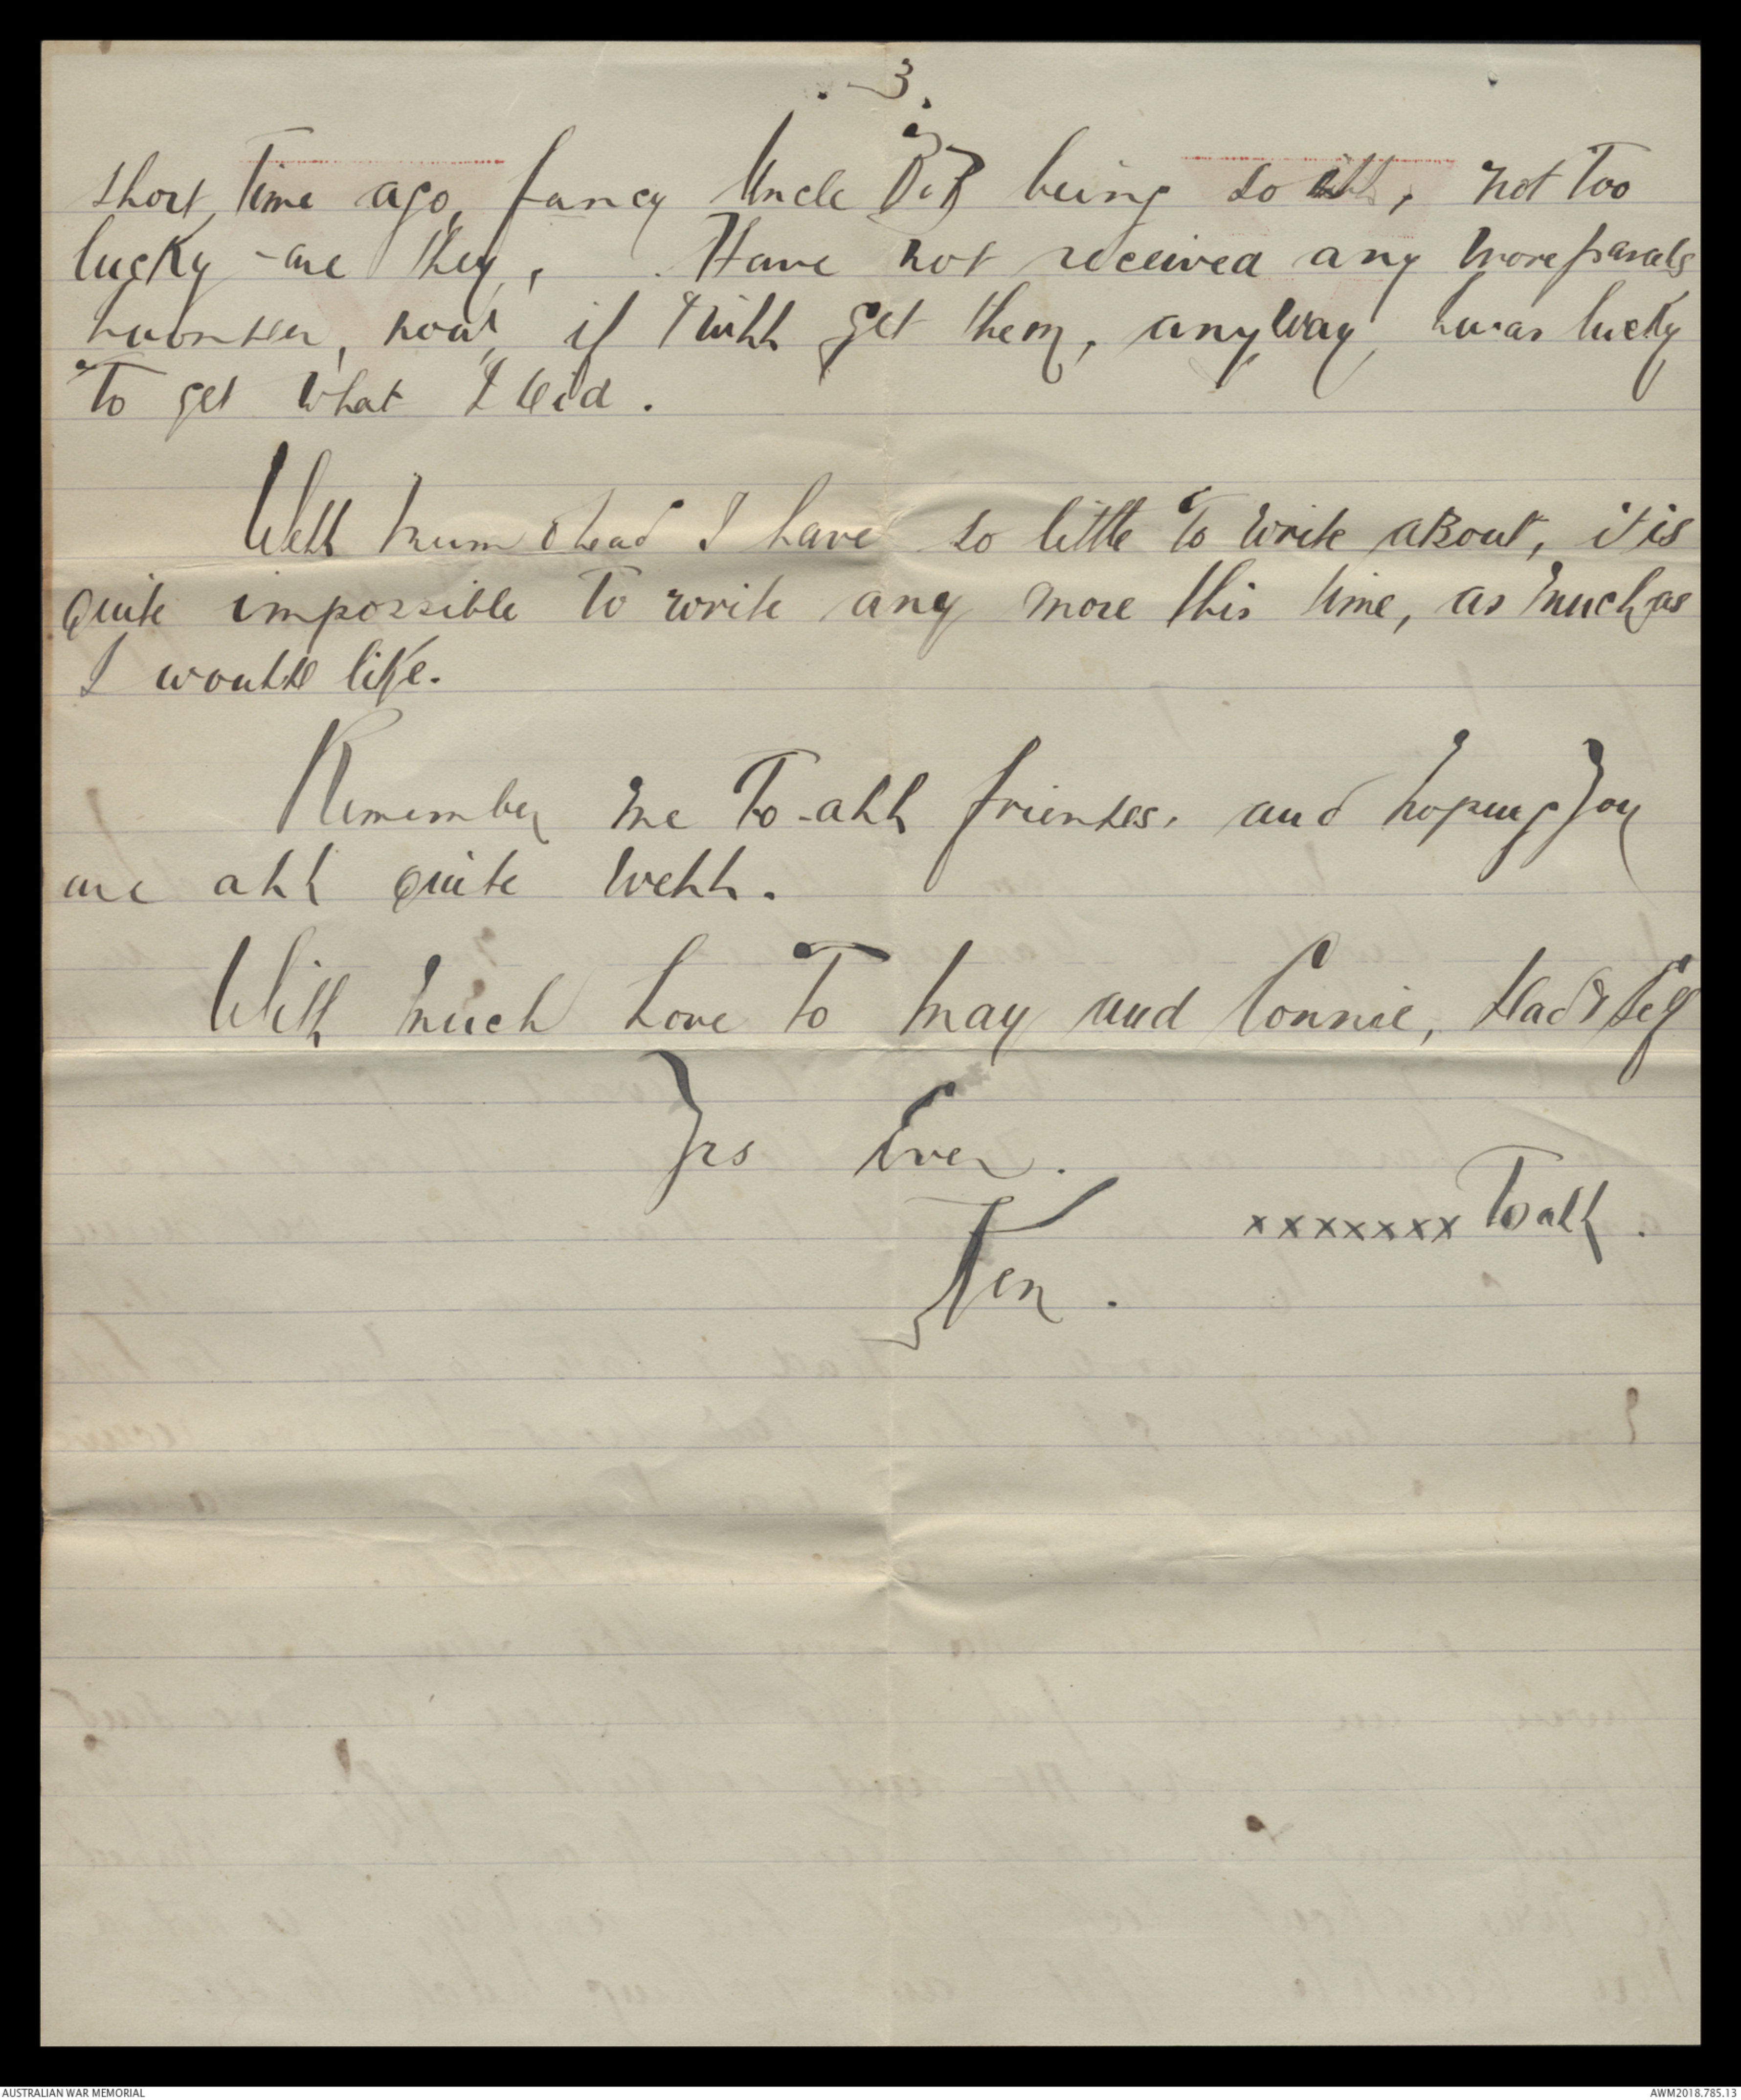 . 3.
short, time ago, fancy Uncle Bob being so ill, not too
lucky - are they, . Have not received any more parcels
wonder, now, if I will get them, anyway, was lucky
To get what I did.
Well Mum & Dad I have so little To write about, it is
quite impossible To write any more this time, as much as
I would like.
Remember me To all friends, and hoping you
are all quite well.
With much Love To May and Connie, Dad & Self
Yrs Ever.
xxxxxxx To all.
Ken.
AUSTRALIAN WAR MEMORIAL
AWM2018.785.13